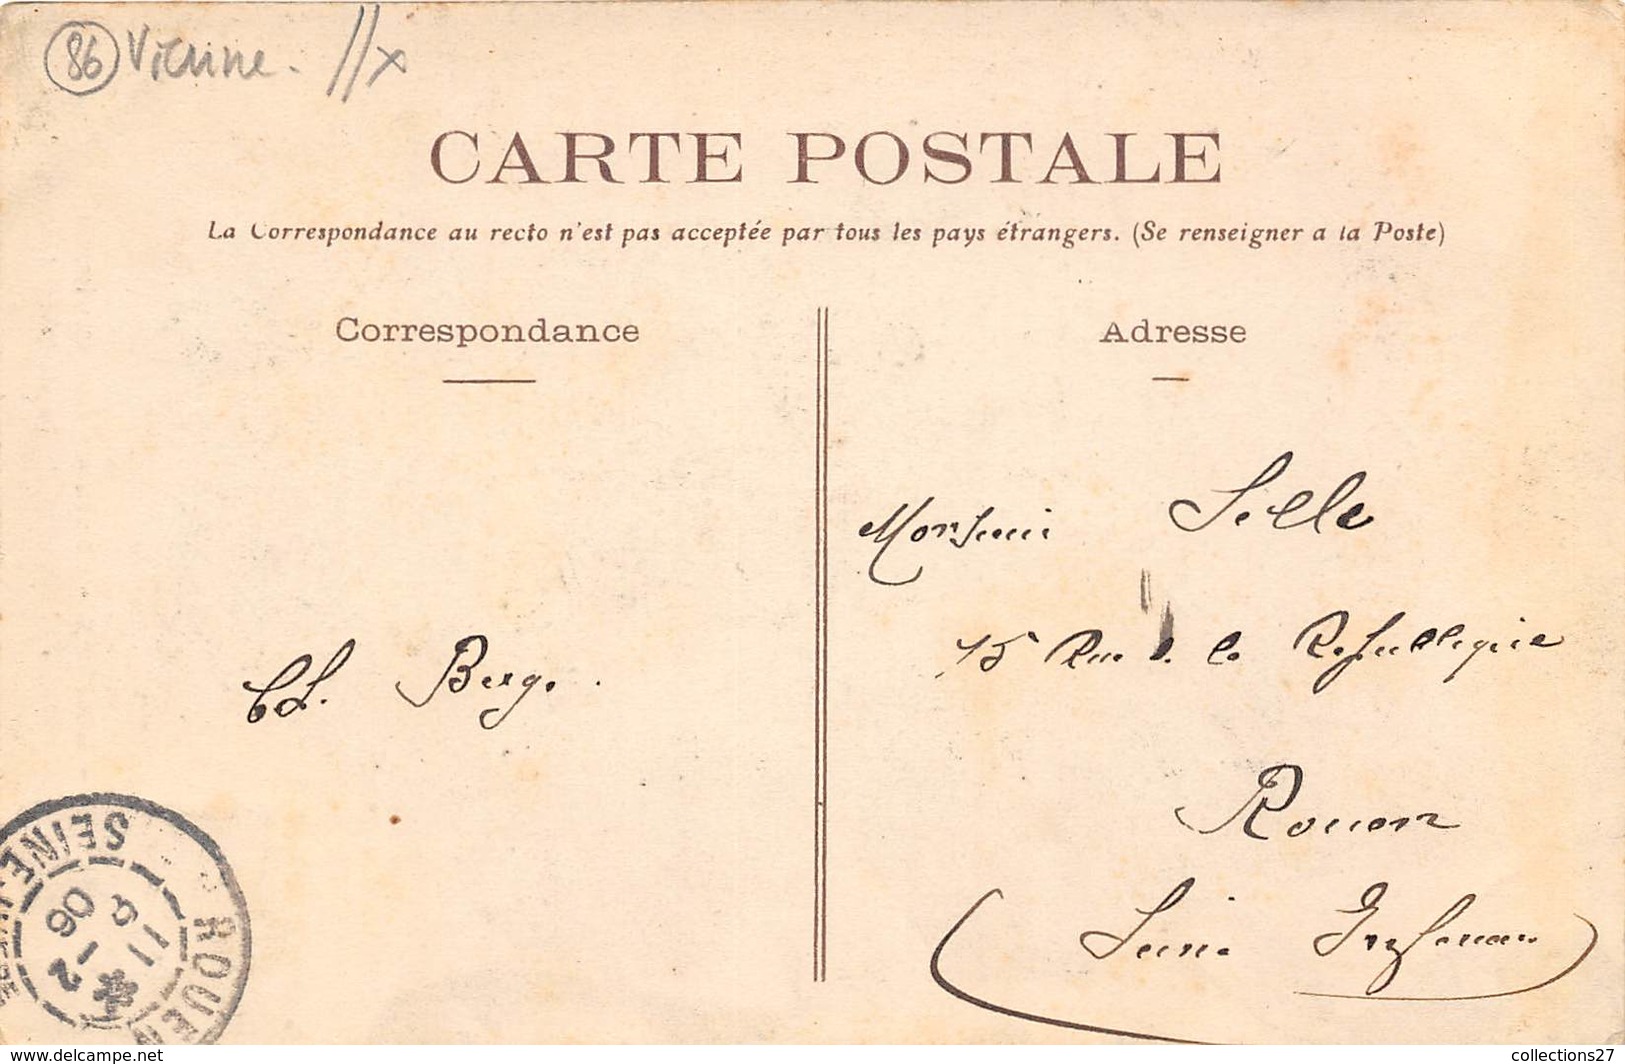 86 Vienne.
CARTE POSTALE
La Correspondance au recto n'est pas acceptée par tous les pays étrangers. (Se renseigner a la Poste)
Correspondance
Adresse
Monsieur
15 Rue de la République
Ch. Berge.
Rouen
Seine Inférieure
SEINE-INFRE
ROUEN
11
9
-2
06
www.delcampe.net
collections27